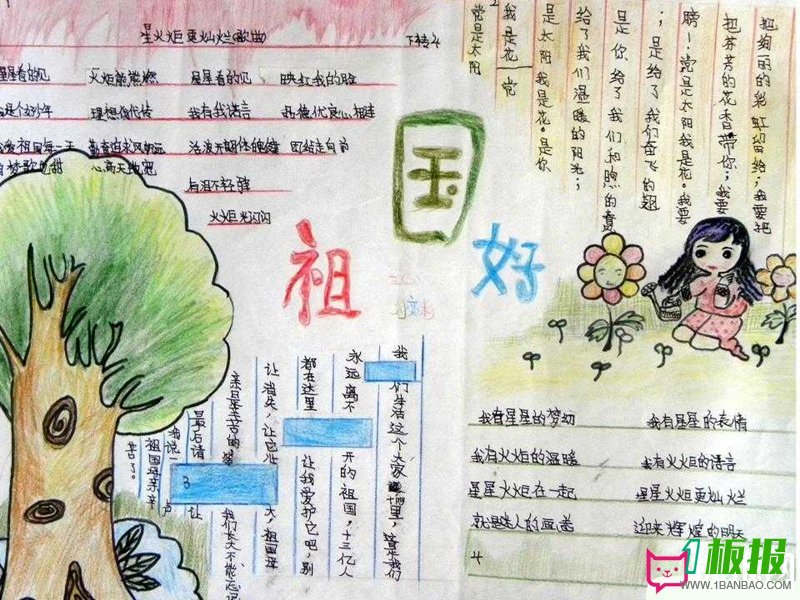 星火炬更灿烂歌曲
下转4
星星看的见 火炬能常燃 星星看的见 映红我的脸
是个好少年 理想代代传 我有我诺言 品德优良心相连
祖国每一天 勤奋追求风 活泼开朗体 团结走向前
心高天地宽
火炬光闪闪
2
党是太阳
我是花 党
是太阳 我是花。是你
给了我们温暖的阳光;
是你给了我们和煦的
;是给了我们奋飞的翅
膀!党是太阳我是花。我要
把芬芳的花香带你;我要
把绚丽的彩虹留给;我要把
祖
国
好
我们生活这个大家里,这是我们
永远离不开的祖国,十三亿人
都在这里 让我爱护它吧,别
让消失,让它 大,祖国
亲是辛苦的 我们长大不能忘记
最后请 让
我说一声
祖国母亲辛
苦了。
3
我有星星的梦幻 我有星星的表情
我有火炬的温暖 我有火炬的语言
星星火炬在一起 星星火炬更灿烂
就是迷人的画卷 迎来辉煌的明天
4
1板报
WWW.1BANBAO.COM